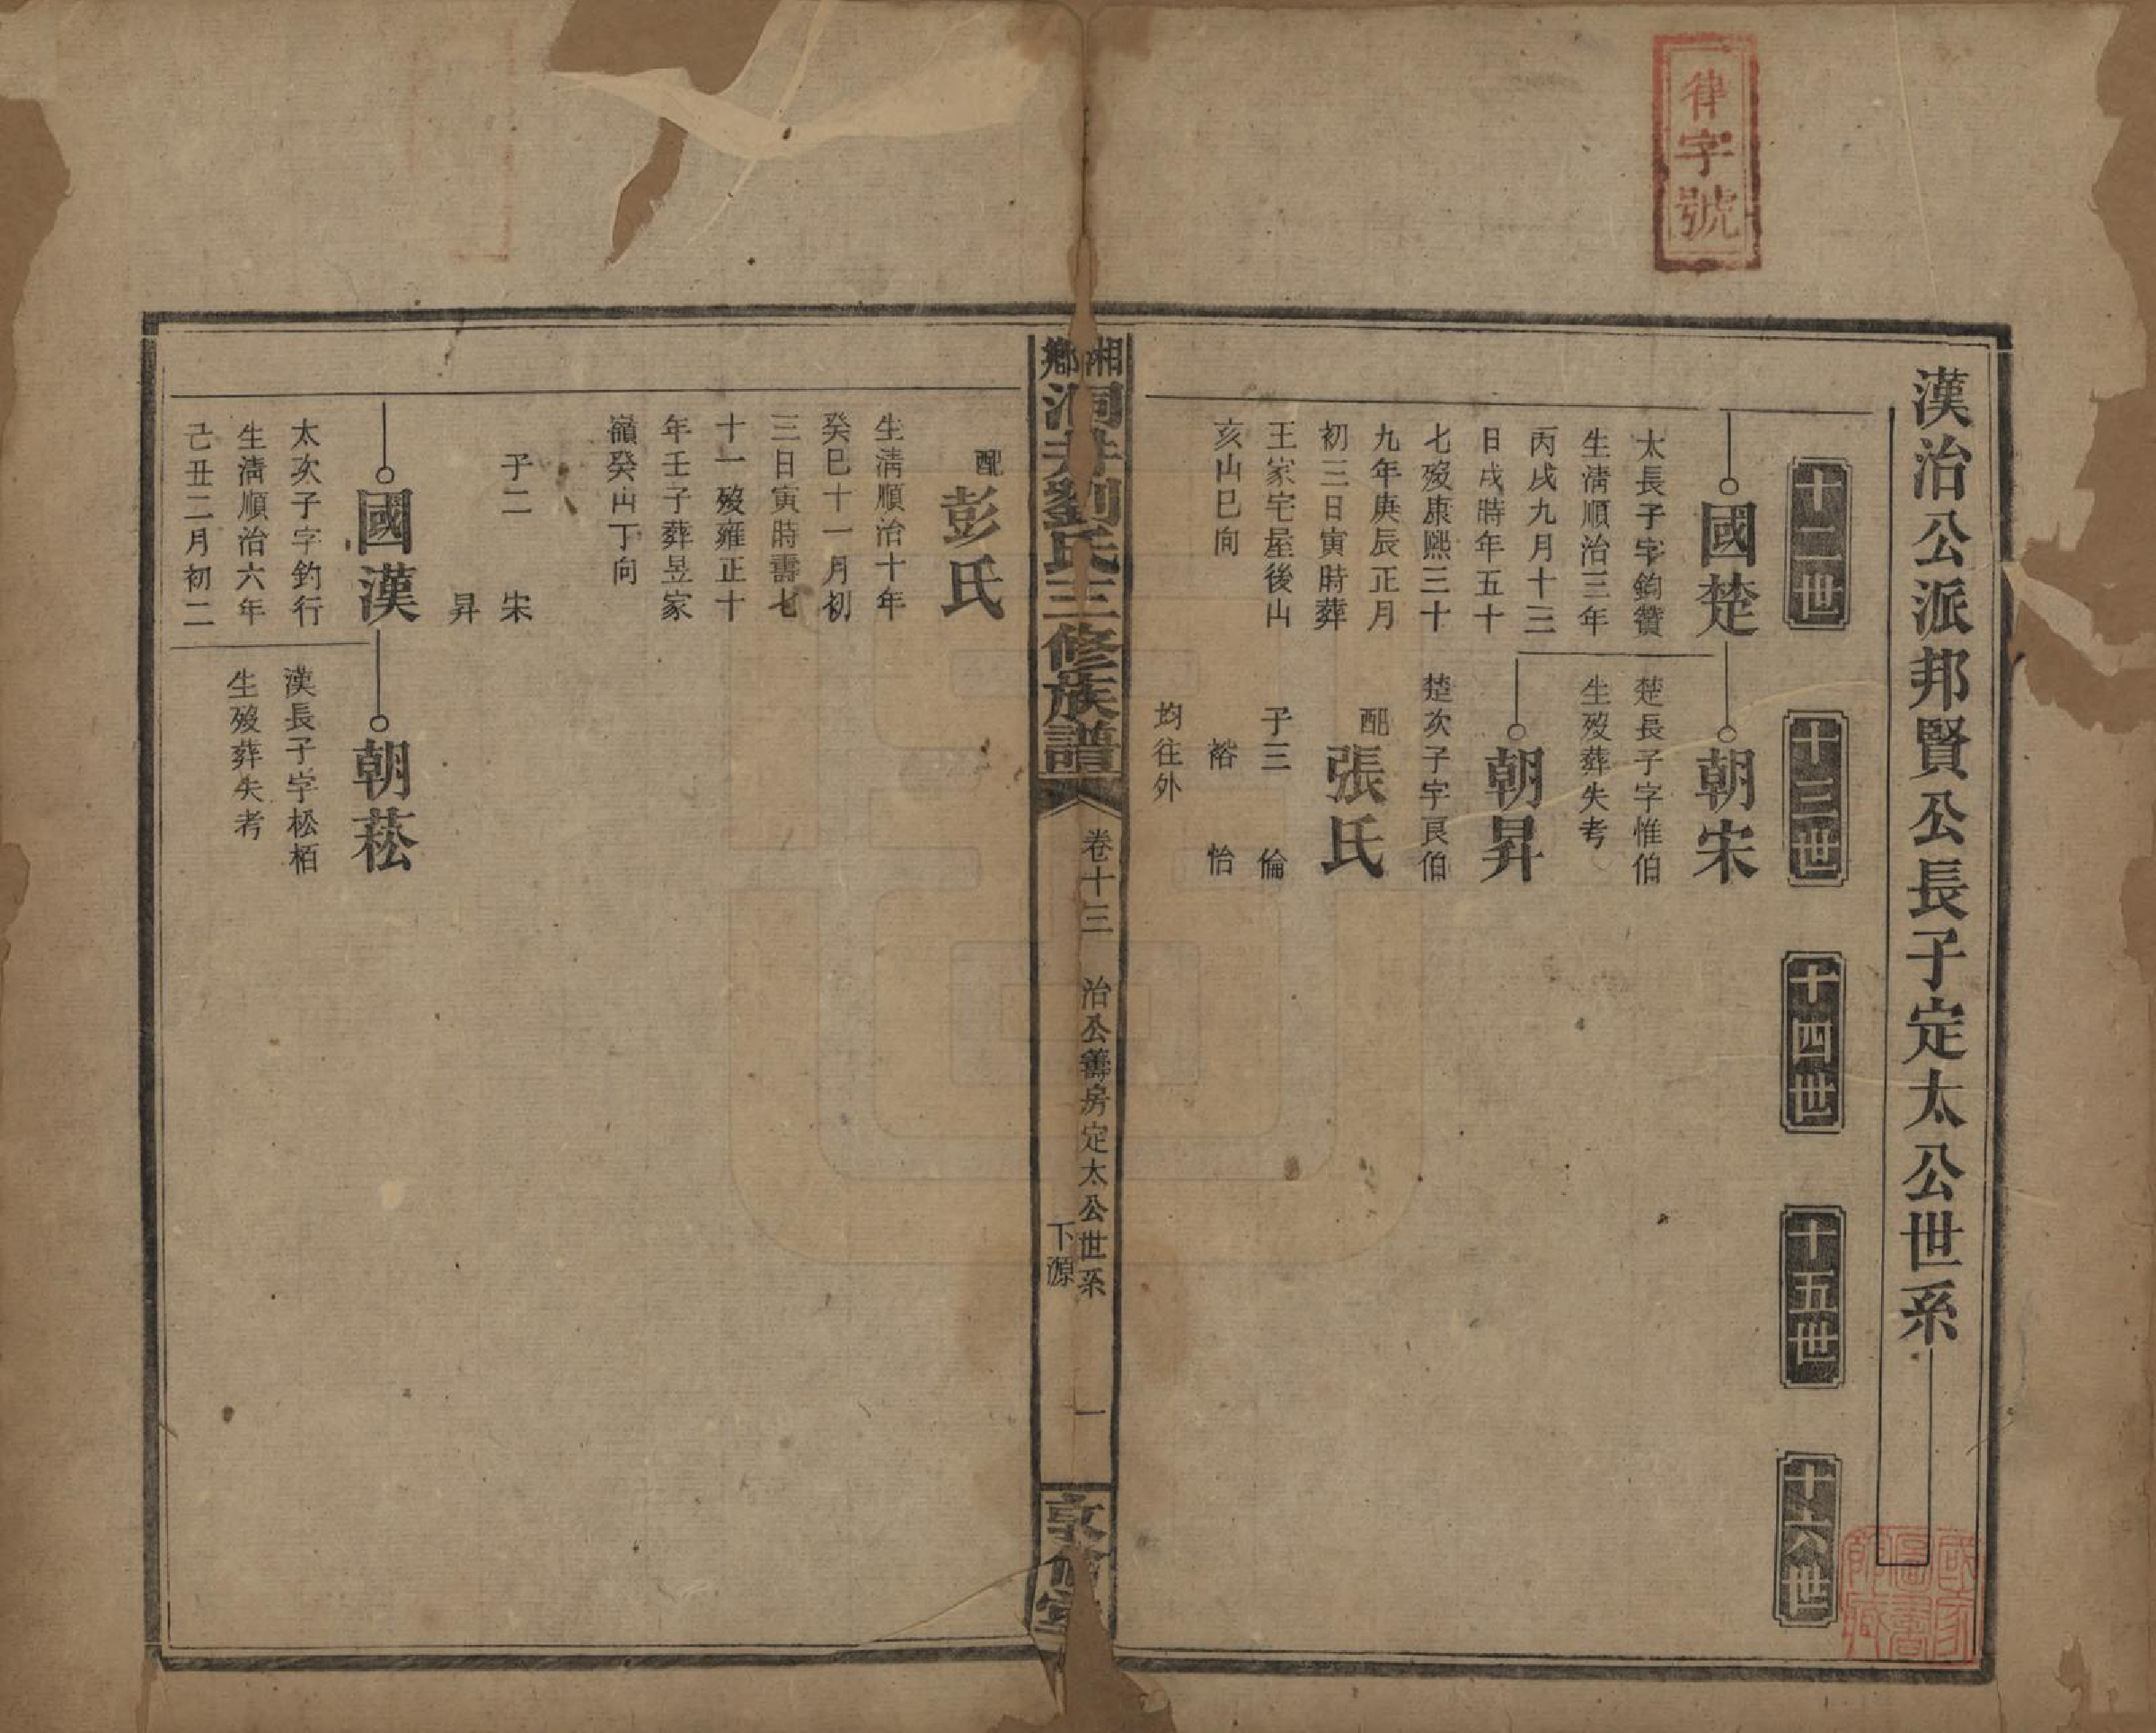 律字號
漢治公派邦賢公長子定太公世系
十二世
十三世
十四世
十五世
十六世
國楚
太長子字鈞贊
生清順治三年
丙戌九月十三
日戌時年五十
七歿康熙三十
九年庚辰正月
初三日寅時葬
王家宅屋後山
亥山巳向
朝宋
楚長子字惟伯
生歿葬失考
朝昇
楚次子字良伯
配
張氏
子三 倫
裕 怡
均往外
湘鄉
洞井劉氏三修族譜
卷十三 治公籌房定太公世系
下源
一
敦
配
彭氏
生清順治十年
癸巳十一月初
三日寅時壽七
十一歿雍正十
年壬子葬昱家
嶺癸山丁向
子二 宋
昇
國漢
太次子字鈞行
生清順治六年
己丑二月初二
朝菘
漢長子字松栢
生歿葬失考
國家圖書館藏